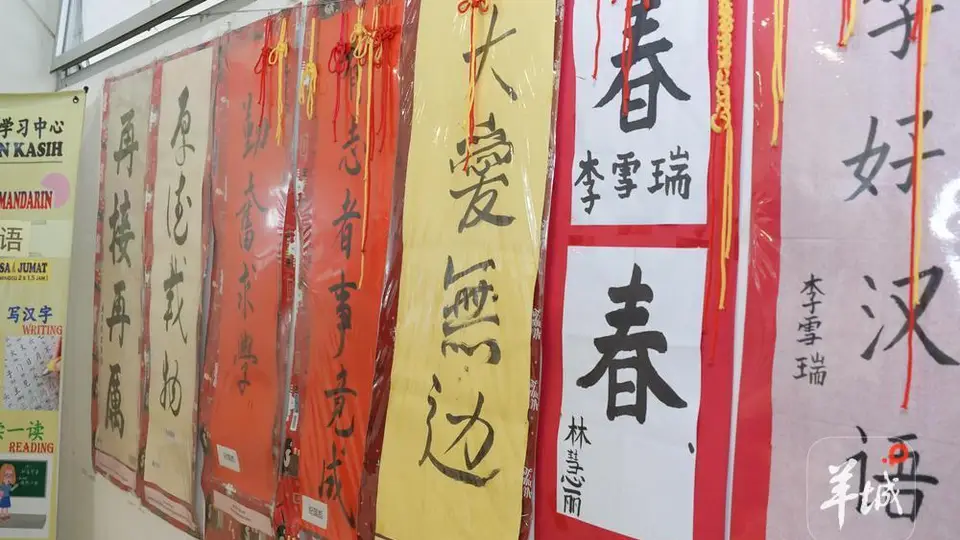 学习中心
N KASIH
MANDARIN
语
SA / JUMAT
写汉字
WRITING
一读
READING
再接再厲
厚德载物
勤奮求学
有志者事竟成
大愛無边
春
李雪瑞
春
林慧丽
好汉语
李雪瑞
羊城